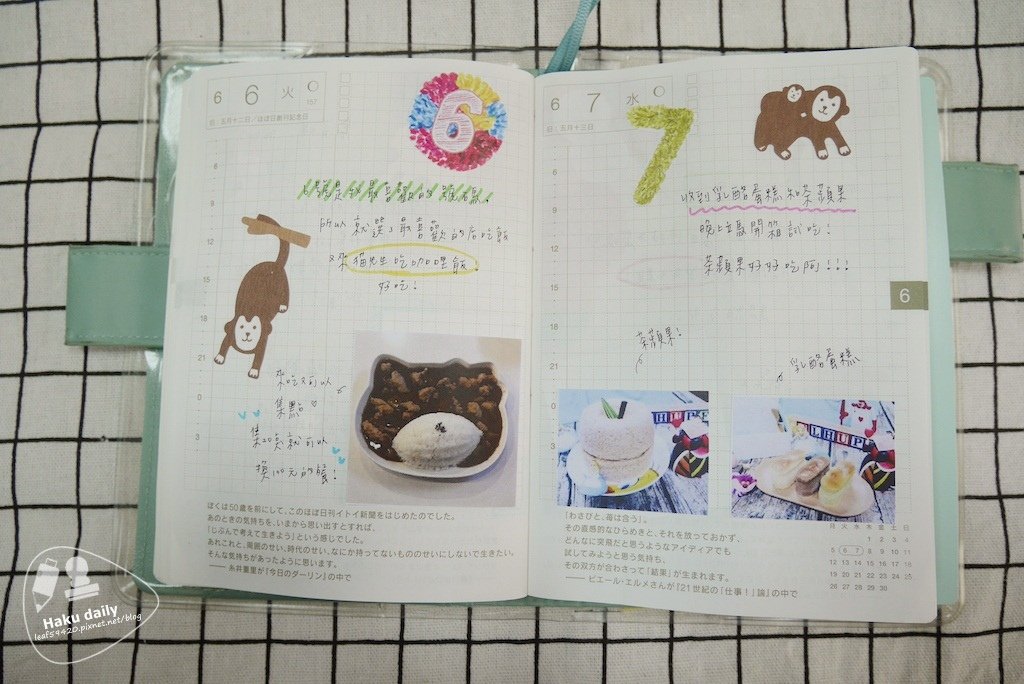 6 6 火
157
旧：五月十二日／ほぼ日創刊記念日
6
所以就選了最喜歡的店吃飯
又來貓先生吃咖哩飯！
好吃！
6
9
12
15
18
21
0
3
來吃又可以
集點♡
集20點就可以
換100元的餐！
ぼくは50歳を前にして、このほぼ日刊イトイ新聞をはじめたのでした。
あのときの気持ちを、いまから思い出すとすれば、
「じぶんで考えて生きよう」という感じでした。
あれこれと、周囲のせい、時代のせい、なにか持ってないもののせいにしないで生きたい。
そんな気持ちがあったように思います。
―― 糸井重里が『今日のダーリン』の中で
6 7 水
旧：五月十三日
7
收到乳酪蛋糕和茶蘋果
晚上馬上開箱試吃！
茶蘋果好好吃阿!!!
6
6
9
12
15
18
21
0
3
茶蘋果！
乳酪蛋糕
「わさびと、苺は合う」。
その直感的なひらめきと、それを放っておかず、
どんなに突飛だと思うようなアイディアでも
試してみようと思う気持ち、
その双方が合わさって「結果」が生まれます。
―― ピエール・エルメさんが『21世紀の「仕事！」論』の中で
月 火 水 木 金 土 日
1 2 3 4
5 6 7 8 9 10 11
12 13 14 15 16 17 18
19 20 21 22 23 24 25
26 27 28 29 30
Haku daily
leaf59420.pixnet.net/blog